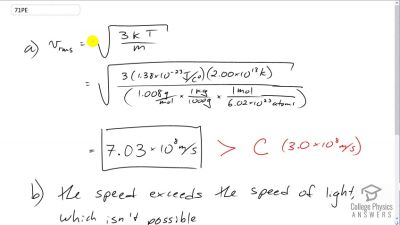 71PE
a) v_rms = √(3kT/m)
= √(3(1.38×10⁻²³ J/C°)(2.00×10¹³ K) / (1.008 g/mol × 1kg/1000g × 1mol/6.02×10²³ atoms))
= 7.03×10⁸ m/s > C (3.0×10⁸ m/s)
b) the speed exceeds the speed of light,
which isn't possible
College Physics
ANSWERS